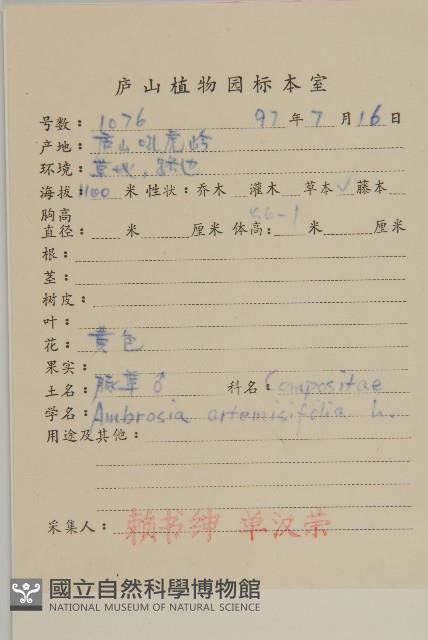 庐山植物园标本室
号数：1076 97年7月16日
产地：庐山吼虎岭
环境：草地，路边
海拔：1100米 性状：乔木 灌木 草本✓藤本
胸高
直径： 米 厘米 体高：0.6-1米 厘米
根：
茎：
树皮：
叶：
花：黄色
果实：
土名：豚草♂ 科名：Compositae
学名：Ambrosia artemisifolia L.
用途及其他：
采集人：赖书绅 单汉荣
國立自然科學博物館
NATIONAL MUSEUM OF NATURAL SCIENCE